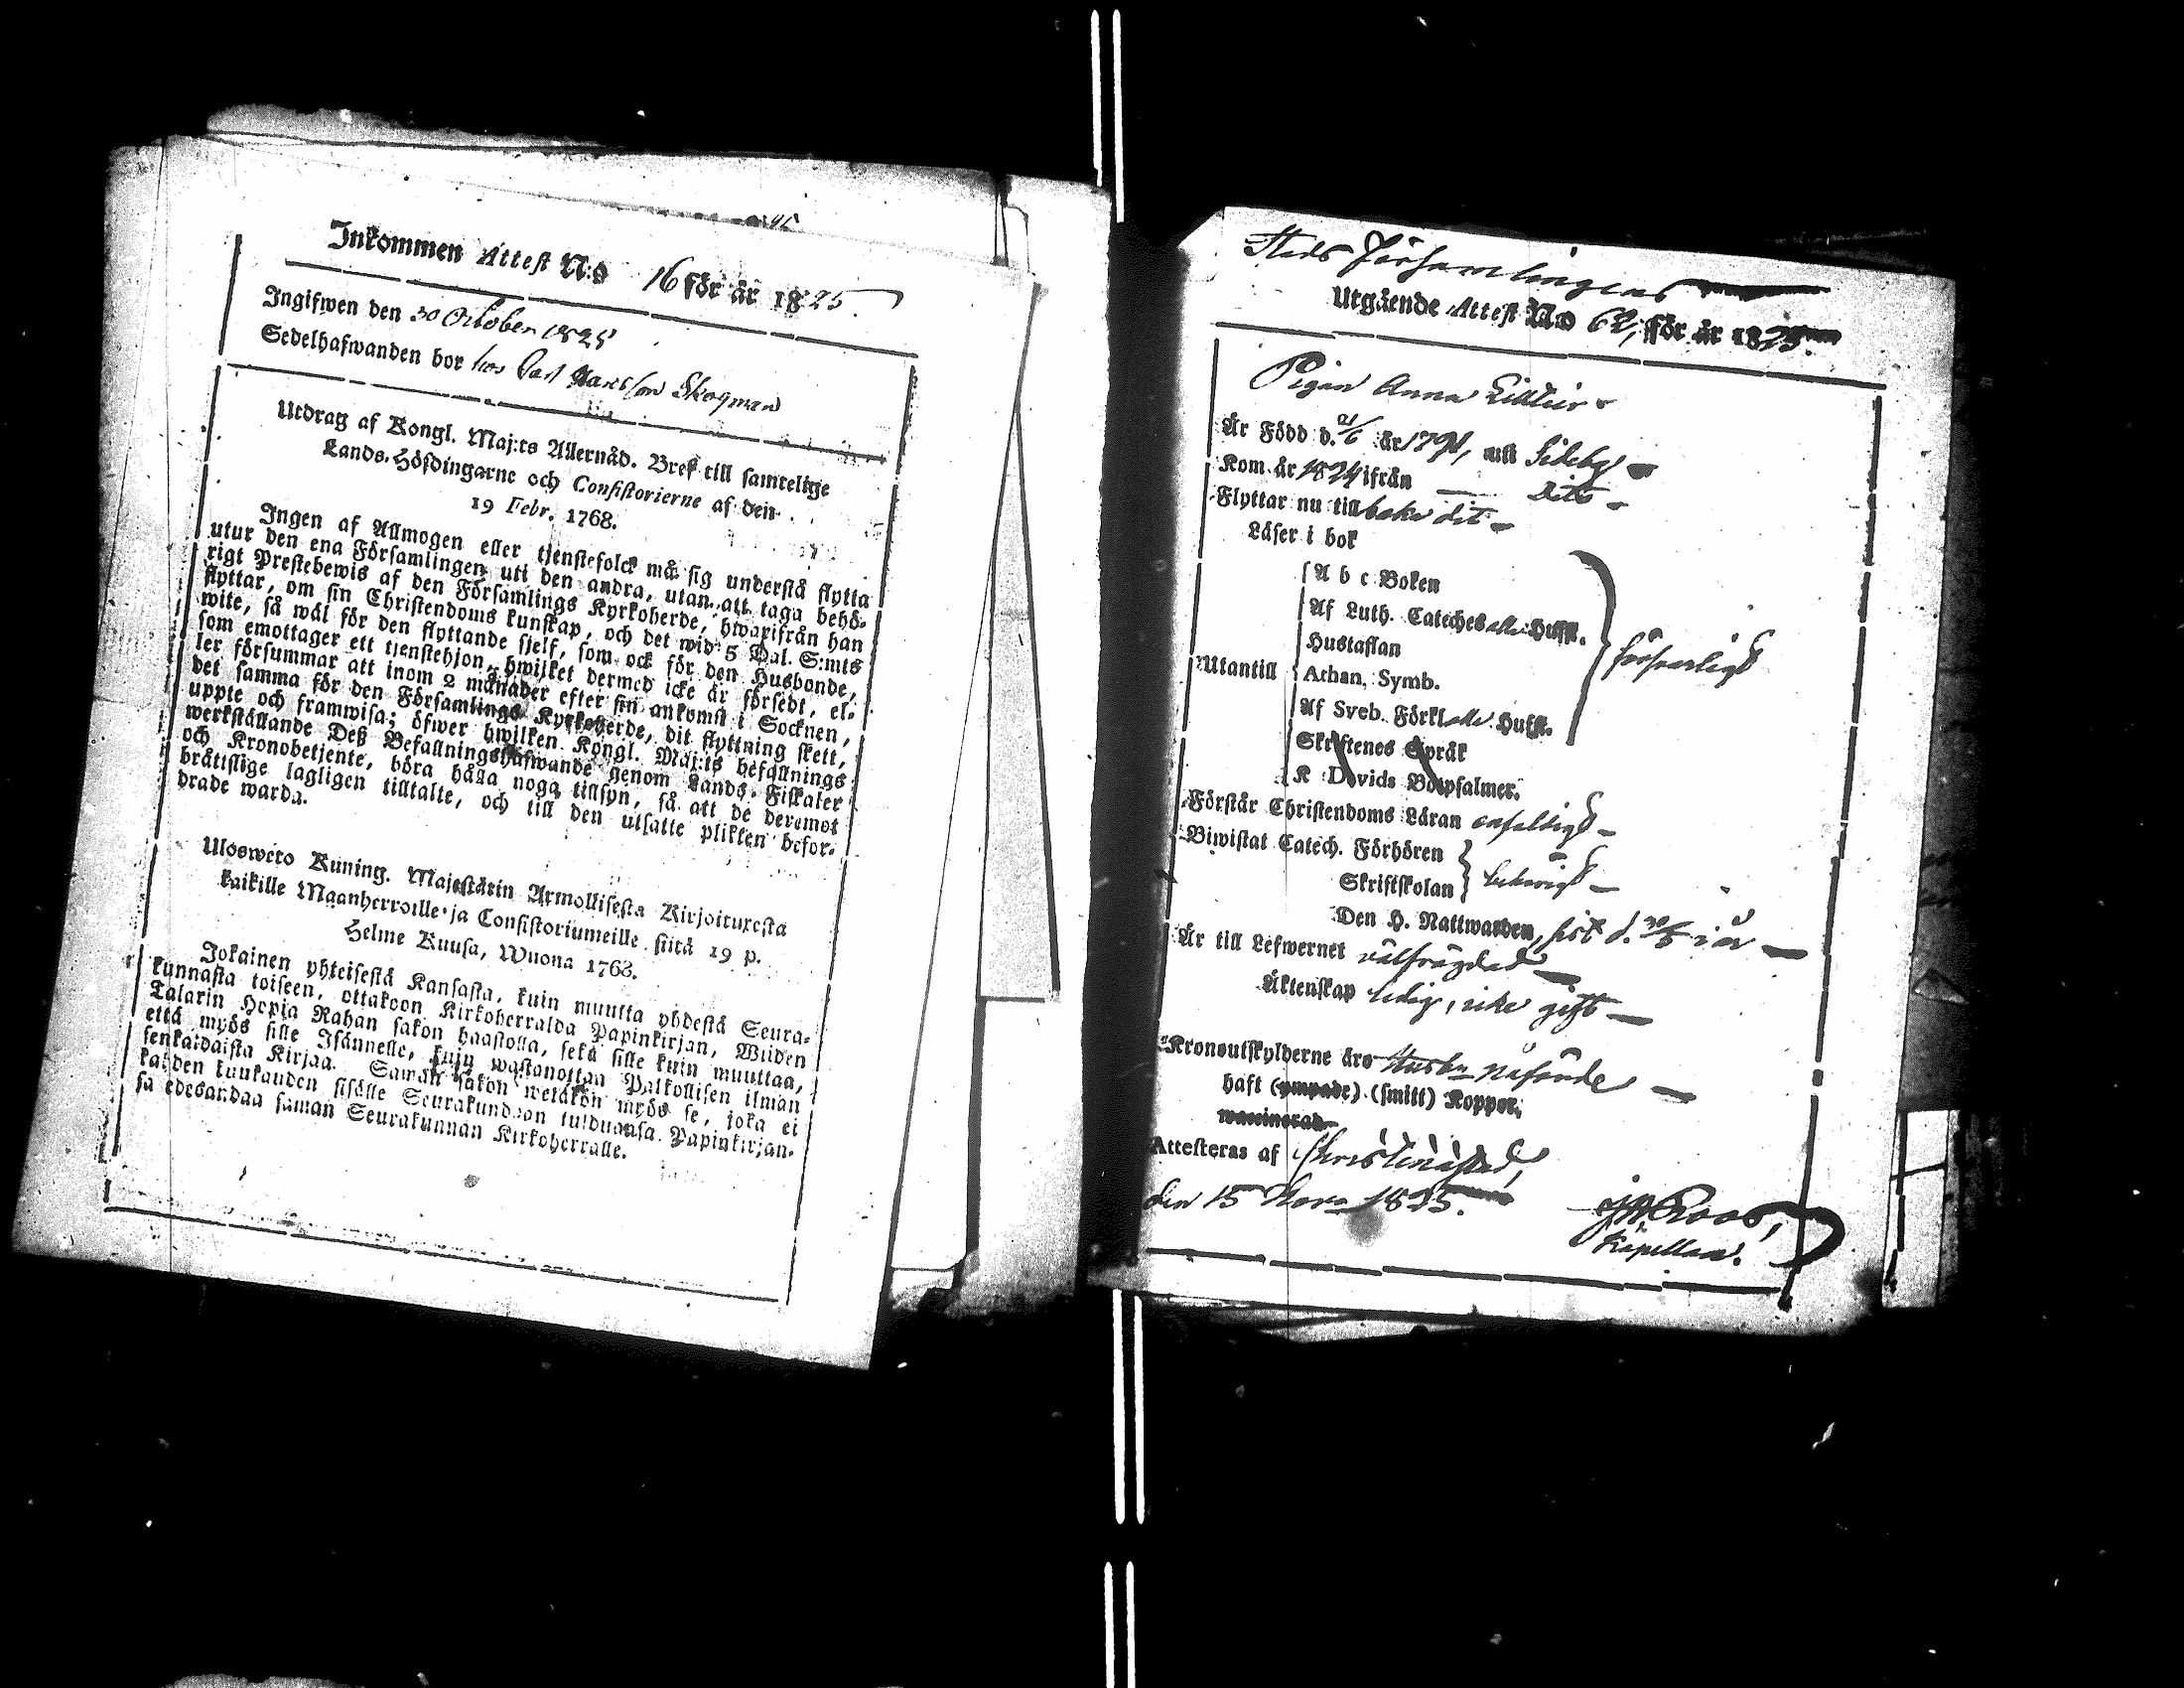 Inkommen Attest N:o 16 för år 1825
Ingifwen den 30 October 1825
Sedelhafwanden bor hos Carl Skogman
Utdrag af Kongl. Maj:ts Allernåd. Bref till samtelige
Lands-Höfdingarne och Consistorierne af den
19 Febr. 1768.
Ingen af Allmogen eller tjenstefolck må sig understå flytta
utur den ena Församlingen uti den andra, utan att taga behö-
rigt Prestebewis af den Församlings Kyrkoherde, hwarifrån han
flyttar, om sin Christendoms kunskap, och det wid 5 Dal. S:mts
wite, så wäl för den flyttande sjelf, som ock för den Husbonde,
som emottager ett tjenstehjon, hwilket dermed icke är försedt, el-
ler försummar att inom 2 månader efter sin ankomst i Socknen,
det samma för den Församlings Kyrkoherde, dit flyttning skett,
uppte och framwisa; öfwer hwilken Kongl. Maj:ts befallnings
werkställande Deß Befallningshafwande genom Lands-Fiskaler
och Kronobetjente, böra hålla noga tillsyn, så att de deremot
bråttslige lagligen tilltalte, och till den utsatte plikten befor-
drade warda.
Ulosweto Kuning. Majestätin Armollisesta Kirjoituxesta
kaikille Maanherroille ja Consistoriumeille siitä 19 p.
Helme Kuusa, Wuona 1768.
Jokainen yhteisestä Kansasta, kuin muutta yhdestä Seura-
kunnasta toiseen, ottakoon Kirkoherralda Papinkirjan, Wiiden
Talarin Hopia Rahan sakon haastolla, sekä sille kuin muuttaa,
että myös sille Isännelle, kuin wastanottaa Palkollisen ilman
senkaldaista Kirjaa. Saman sakon wetäkön myös se, joka ei
kahden kuukauden sisälle Seurakundaan tulduansa Papinkirjan-
sa edesandaa saman Seurakunnan Kirkoherralle.
Stads Församlingens
Utgående Attest N:o 62, för år 1825.
Pigan Anna
Är Född d. 21/6 år 1791, uti Sideby
Kom år 1824 ifrån Dito
Flyttar nu till baka dit
Läser i bok
Utantill
A b c Boken
Af Luth. Cateches alla Hufst.
Hustaflan
Athan. Symb.
Af Sveb. Förkl alla Hufst.
Skriftenes Språk
K Davids Botpsalmer.
försvarligt
Förstår Christendoms Läran enfaldigt
Biwistat Catech. Förhören
Skriftskolan
behörigt
Den H. Nattwarden, sist d. 30/5 i år
Är till Lefwernet välfrägdad
Äktenskap ledig, icke gift
Kronoutskylderne äro
haft (ympade) (smitt) Koppor.
waccinerad
Attesteras af Christinæstad,
den 15 Nov. 1825.
Roos,
Kapellan.